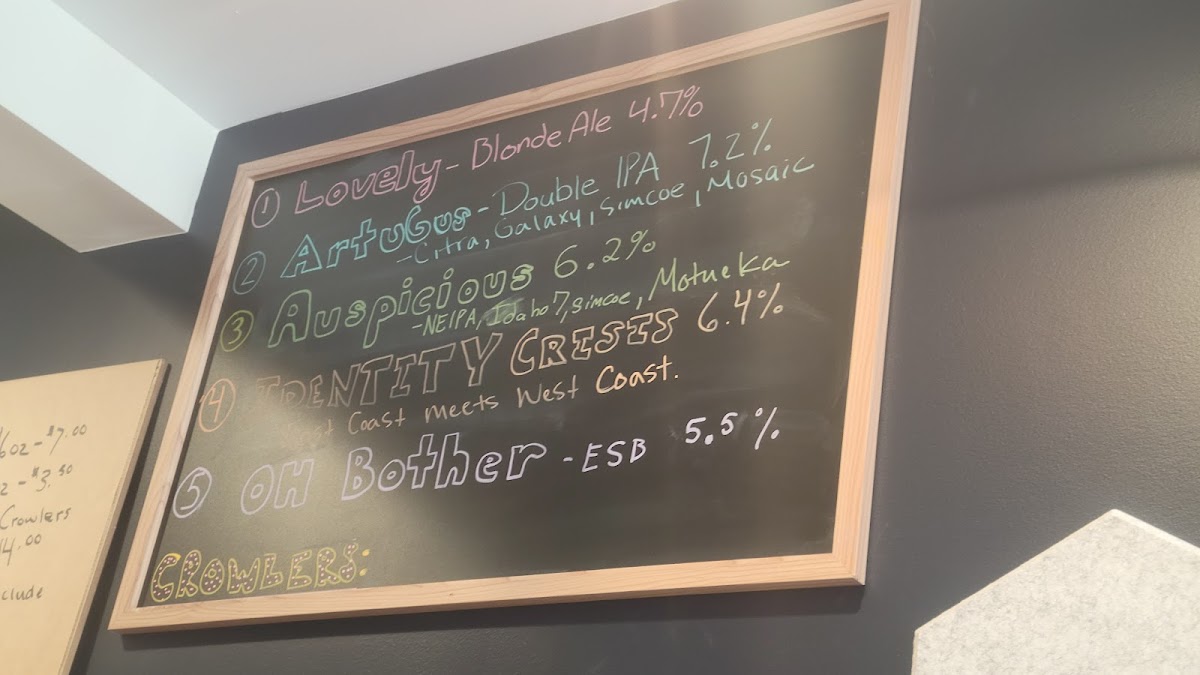 6oz - $7.00
z - $3.50
Crowlers
14.00
clude
① Lovely - Blonde Ale 4.7%
② ArtuGus - Double IPA 7.2%
- Citra, Galaxy, Simcoe, Mosaic
③ Auspicious 6.2%
- NEIPA, Idaho 7, Simcoe, Motueka
④ IDENTITY CRISIS 6.4%
East Coast meets West Coast.
⑤ OH Bother - ESB 5.5%
CROWLERS: